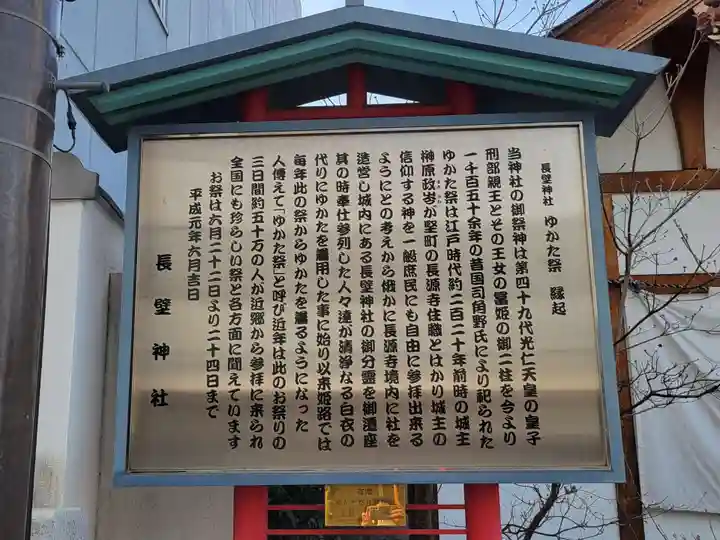 長壁神社 ゆかた祭 縁起
当神社の御祭神は第四十九代光仁天皇の皇子
刑部親王とその王女の富姫の御二柱を今より
一千百五十余年の昔国司角野氏により祀られた
ゆかた祭は江戸時代約二百二十年前時の城主
榊原政岑が竪町の長源寺住職とはかり城主の
信仰する神を一般庶民にも自由に参拝出来る
ようにとの考えから俄かに長源寺境内に社を
造営し城内にある長壁神社の御分霊を御遷座
其の時奉仕参列した人々達が清浄なる白衣の
代りにゆかたを着用した事に始り以来姫路では
毎年此の祭からゆかたを着るようになった
人傳えて「ゆかた祭」と呼び近年は此のお祭りの
三日間約五十万の人が近郷から参拝に来られ
全国にも珍らしい祭と各方面に聞えています
お祭は六月二十二日より二十四日まで
平成元年六月吉日
長壁神社